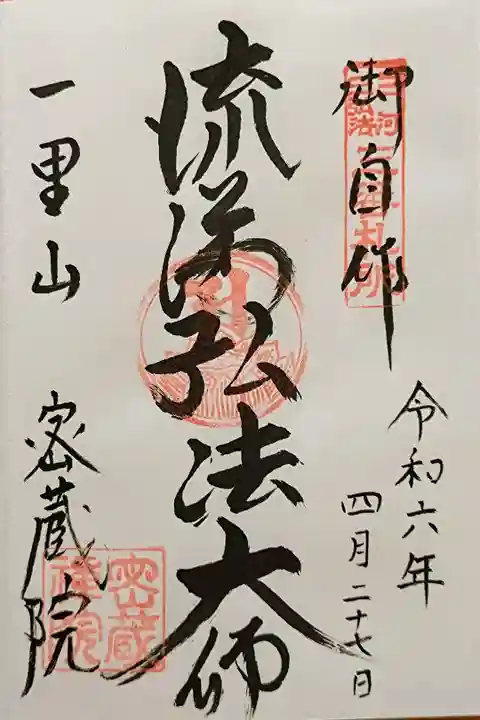 御自作
令和六年
四月二十七日
流涕弘法大師
一里山 密蔵院
密蔵
禅院